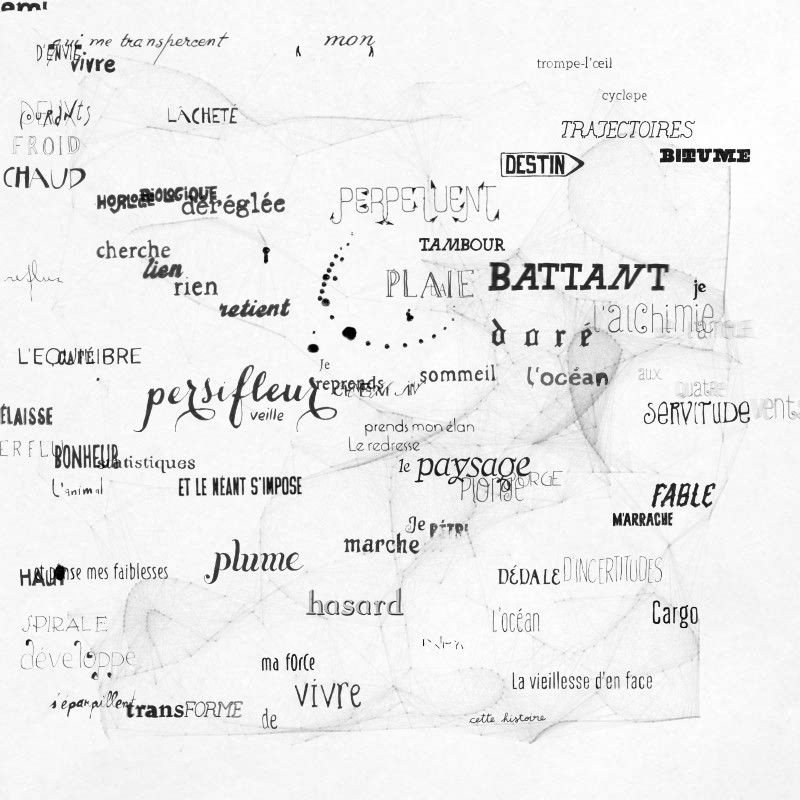 qui me transpercent
mon
D'ENVIE
vivre
trompe-l'œil
cyclope
LÂCHETÉ
TRAJECTOIRES
FROID
BITUME
DESTIN
CHAUD
HORLOGE BIOLOGIQUE
déréglée
PERPÉTUENT
cherche
TAMBOUR
lien
rien
reflux
PLAIE
BATTANT
je
retient
l'alchimie
doré
L'EQUILIBRE
je
reprends
sommeil
l'océan
aux
quatre
persifleur
veille
SERVITUDE
vents
prends mon élan
Le redresse
BONHEUR
statistiques
le
paysage
L'animal
ET LE NÉANT S'IMPOSE
PLONGE
FABLE
M'ARRACHE
Je
marche
plume
HAUT
pense mes faiblesses
DÉDALE
D'INCERTITUDES
hasard
L'océan
Cargo
SPIRALE
développe
ma force
vivre
La vieillesse d'en face
s'éparpillent
transFORME
de
cette histoire